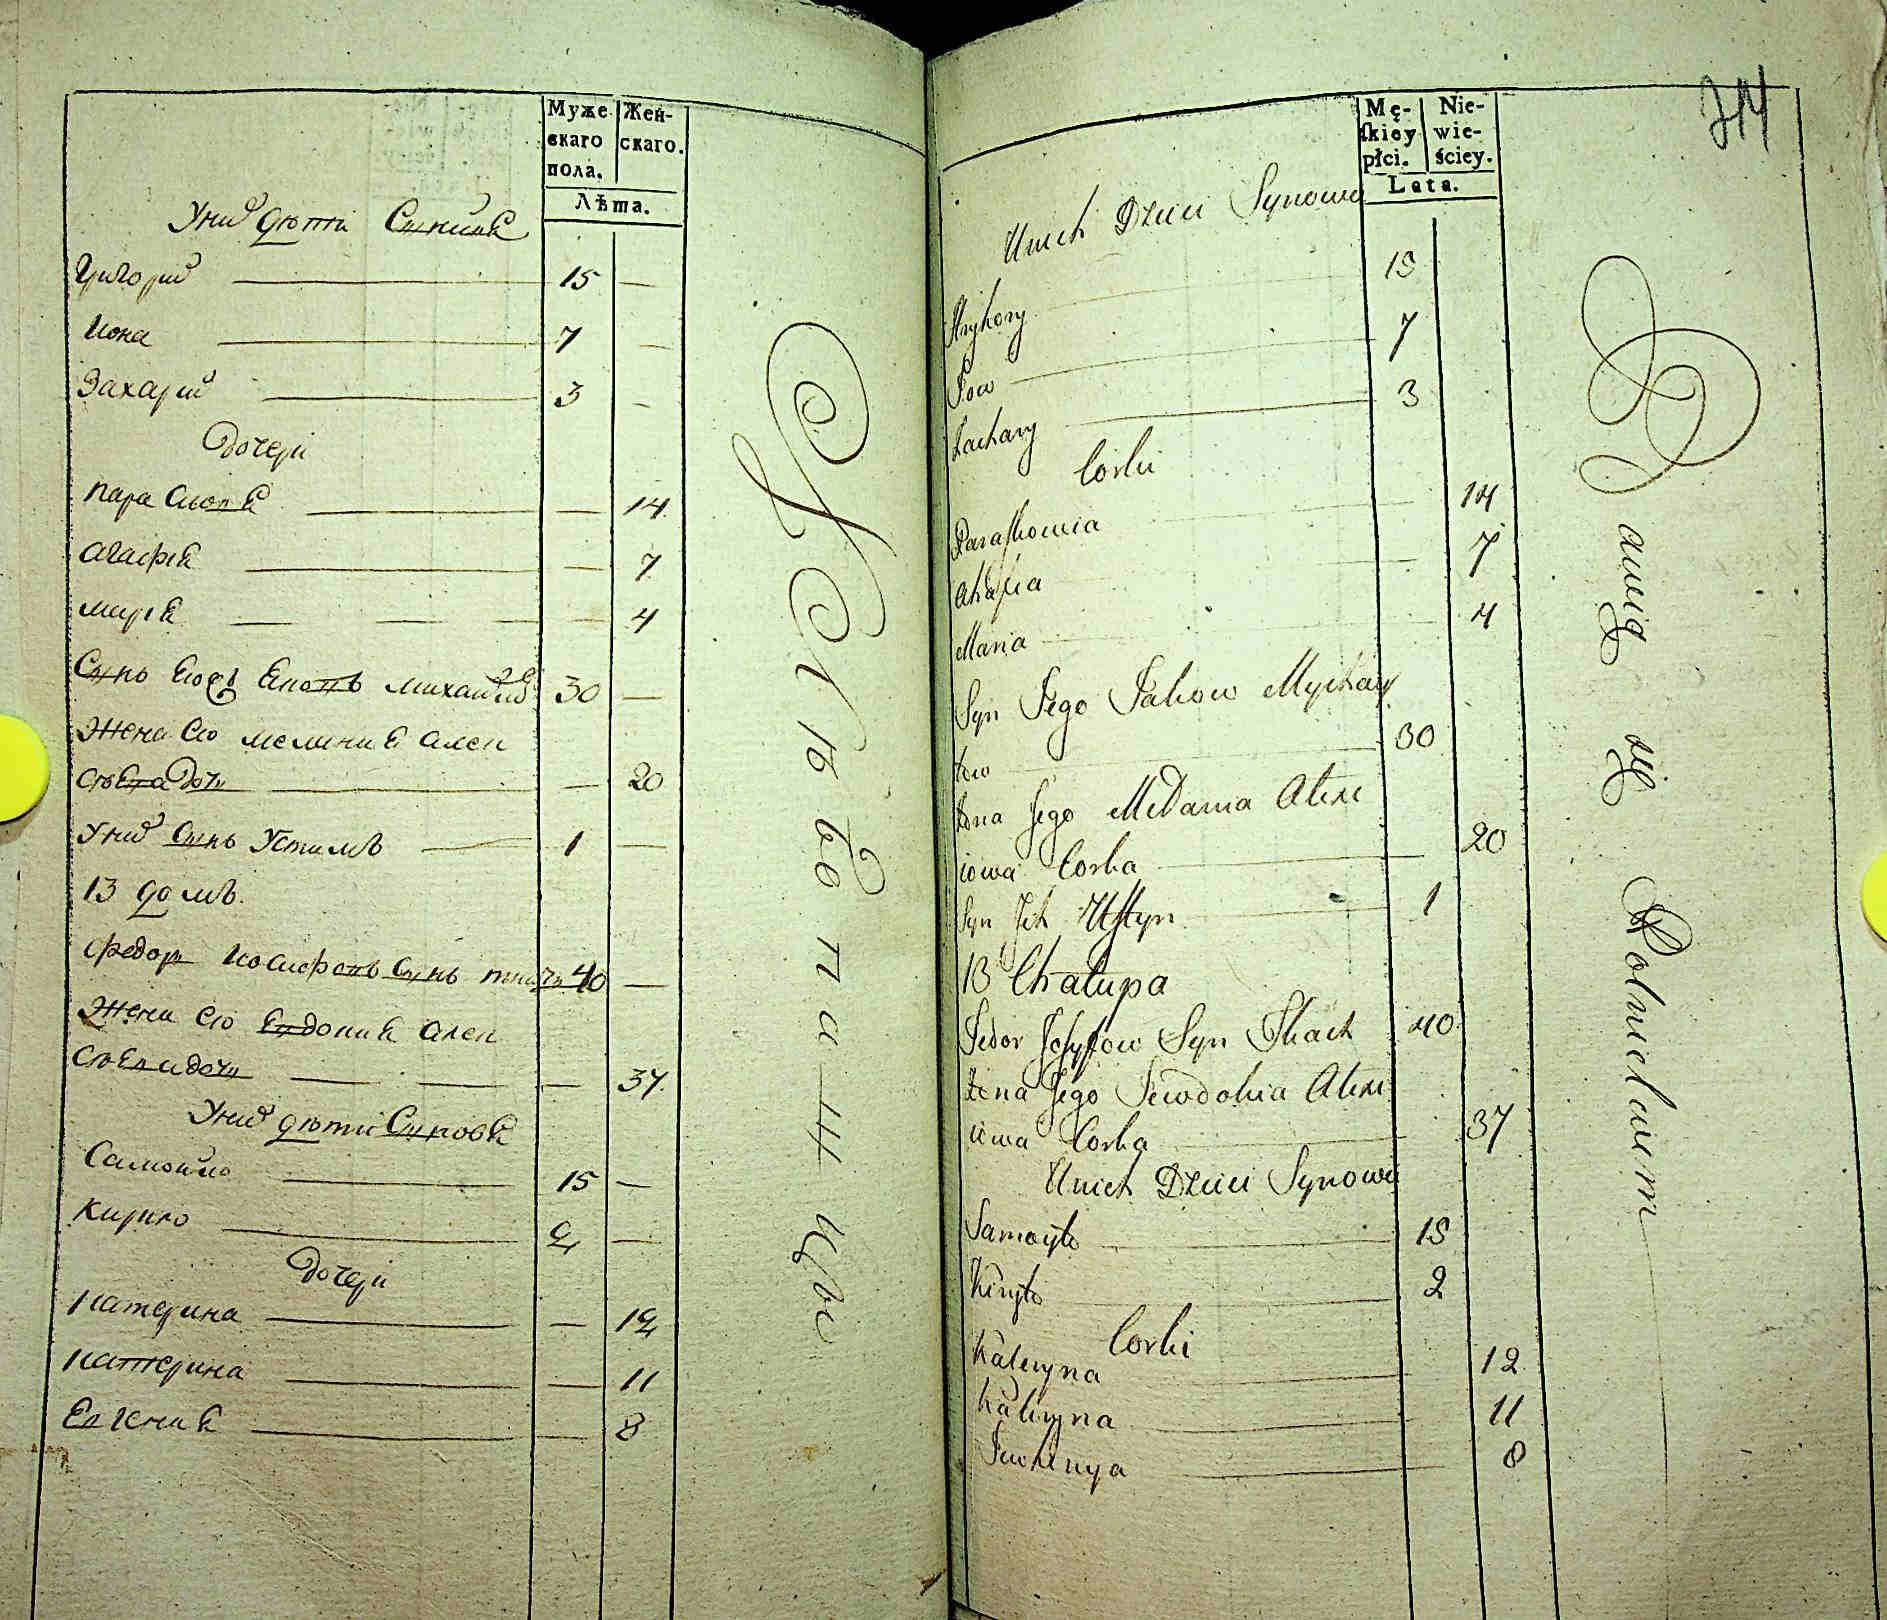 Муже
скаго
пола.
Жен-
скаго.
Лѣта.
Унихъ дѣти Сыновя
Григорий 15 —
Иона 7 —
Захарий 3 —
дочери
Парасковя — 14
Агафия — 7
Мария — 4
Сынъ Его Яковъ Михайловъ 30 —
Жена Его Мелания Алек
сѣева дочь — 20
Унихъ Сынъ Устимъ 1 —
13 домъ.
Федоръ Иосифовъ Сынъ ткачъ 40 —
Жена Его Евдокия Алек
сѣева дочь — 37
Унихъ дѣти Сыновя
Самойло 15 —
Кирило 2 —
дочери
Катерина — 12
Катерина — 11
Евгения — 8
хлѣбопашцы
Mę-
skiey
płci.
Nie-
wie-
ściey.
Lata.
214
Unich Dzieci Synowie
Hryhory 15
Jow 7
Zachary 3
Corki
Paraskowia 14
Ahafia 7
Maria 4
Syn Jego Jakow Mychay
łow 30
Żona Jego Mełania Alexe
iowa Corka 20
Syn Jch Ustyn 1
13 Chałupa
Fedor Josyfow Syn Tkacz 40
Żona Jego Jewdokia Alexe
iowa Corka 37
Unich Dzieci Synowie
Samoyło 15
Kiryło 2
Corki
Kateryna 12
Kateryna 11
Jewhenya 8
Bawią się Rolnictwem